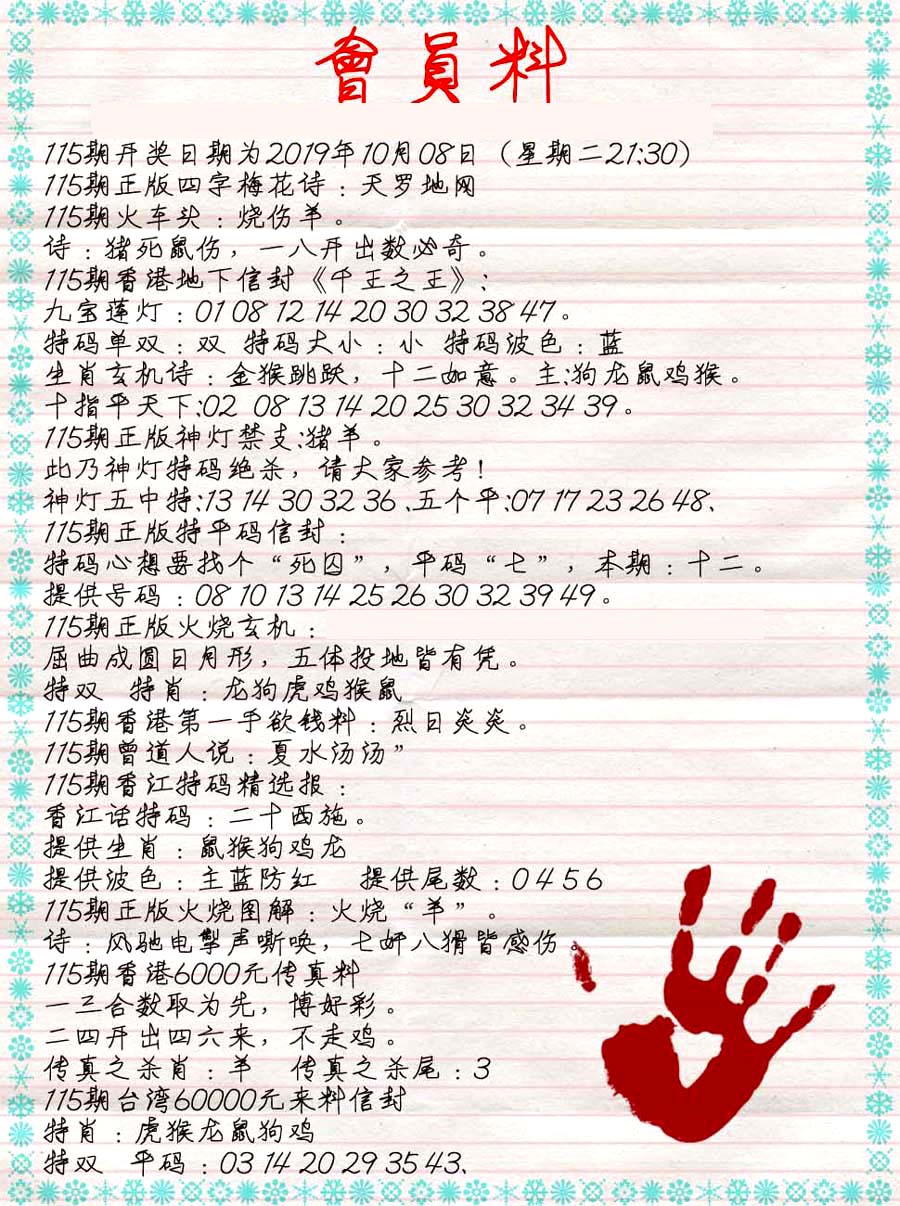 會員料
115期开奖日期为2019年10月08日（星期二21:30）
115期正版四字梅花诗：天罗地网
115期火车头：烧伤羊。
诗：猪死鼠伤，一八开出数必奇。
115期香港地下信封《千王之王》：
九宝莲灯：01 08 12 14 20 30 32 38 47。
特码单双：双 特码大小：小 特码波色：蓝
生肖玄机诗：金猴跳跃，十二如意。主:狗龙鼠鸡猴。
十指平天下:02 08 13 14 20 25 30 32 34 39。
115期正版神灯禁支:猪羊。
此乃神灯特码绝杀，请大家参考！
神灯五中特:13 14 30 32 36、五个平:07 17 23 26 48、
115期正版特平码信封：
特码心想要找个“死囚”，平码“七”，本期：十二。
提供号码：08 10 13 14 25 26 30 32 39 49。
115期正版火烧玄机：
屈曲成圆日月形，五体投地皆有凭。
特双 特肖：龙狗虎鸡猴鼠
115期香港第一手欲钱料：烈日炎炎。
115期曾道人说：夏水汤汤”
115期香江特码精选报：
香江话特码：二十西施。
提供生肖：鼠猴狗鸡龙
提供波色：主蓝防红 提供尾数：0 4 5 6
115期正版火烧图解：火烧“羊”。
诗：风驰电掣声嘶唤，七奸八猾皆感伤。
115期香港6000元传真料
一三合数取为先，博好彩。
二四开出四六来，不走鸡。
传真之杀肖：羊 传真之杀尾：3
115期台湾60000元来料信封
特肖：虎猴龙鼠狗鸡
特双 平码：03 14 20 29 35 43、